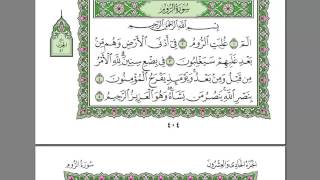 سُورَةُ الرُّومِ
بِسْمِ اللَّهِ الرَّحْمَٰنِ الرَّحِيمِ
الٓمٓ ۝ غُلِبَتِ الرُّومُ ۝ فِي أَدْنَى الْأَرْضِ وَهُم مِّن
بَعْدِ غَلَبِهِمْ سَيَغْلِبُونَ ۝ فِي بِضْعِ سِنِينَ ۗ لِلَّهِ الْأَمْرُ
مِن قَبْلُ وَمِن بَعْدُ ۚ وَيَوْمَئِذٍ يَفْرَحُ الْمُؤْمِنُونَ ۝
بِنَصْرِ اللَّهِ ۚ يَنصُرُ مَن يَشَاءُ ۖ وَهُوَ الْعَزِيزُ الرَّحِيمُ ۝
٤٠٤
الجزء الحادي والعشرون
سورة الروم